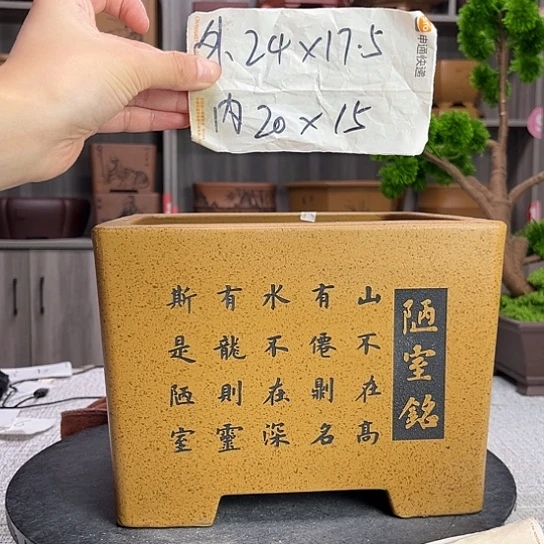 外 24×17.5
内 20×15
申通快递
陋室銘
山不在高
有僊剿名
水不在深
有龍則靈
斯是陋室